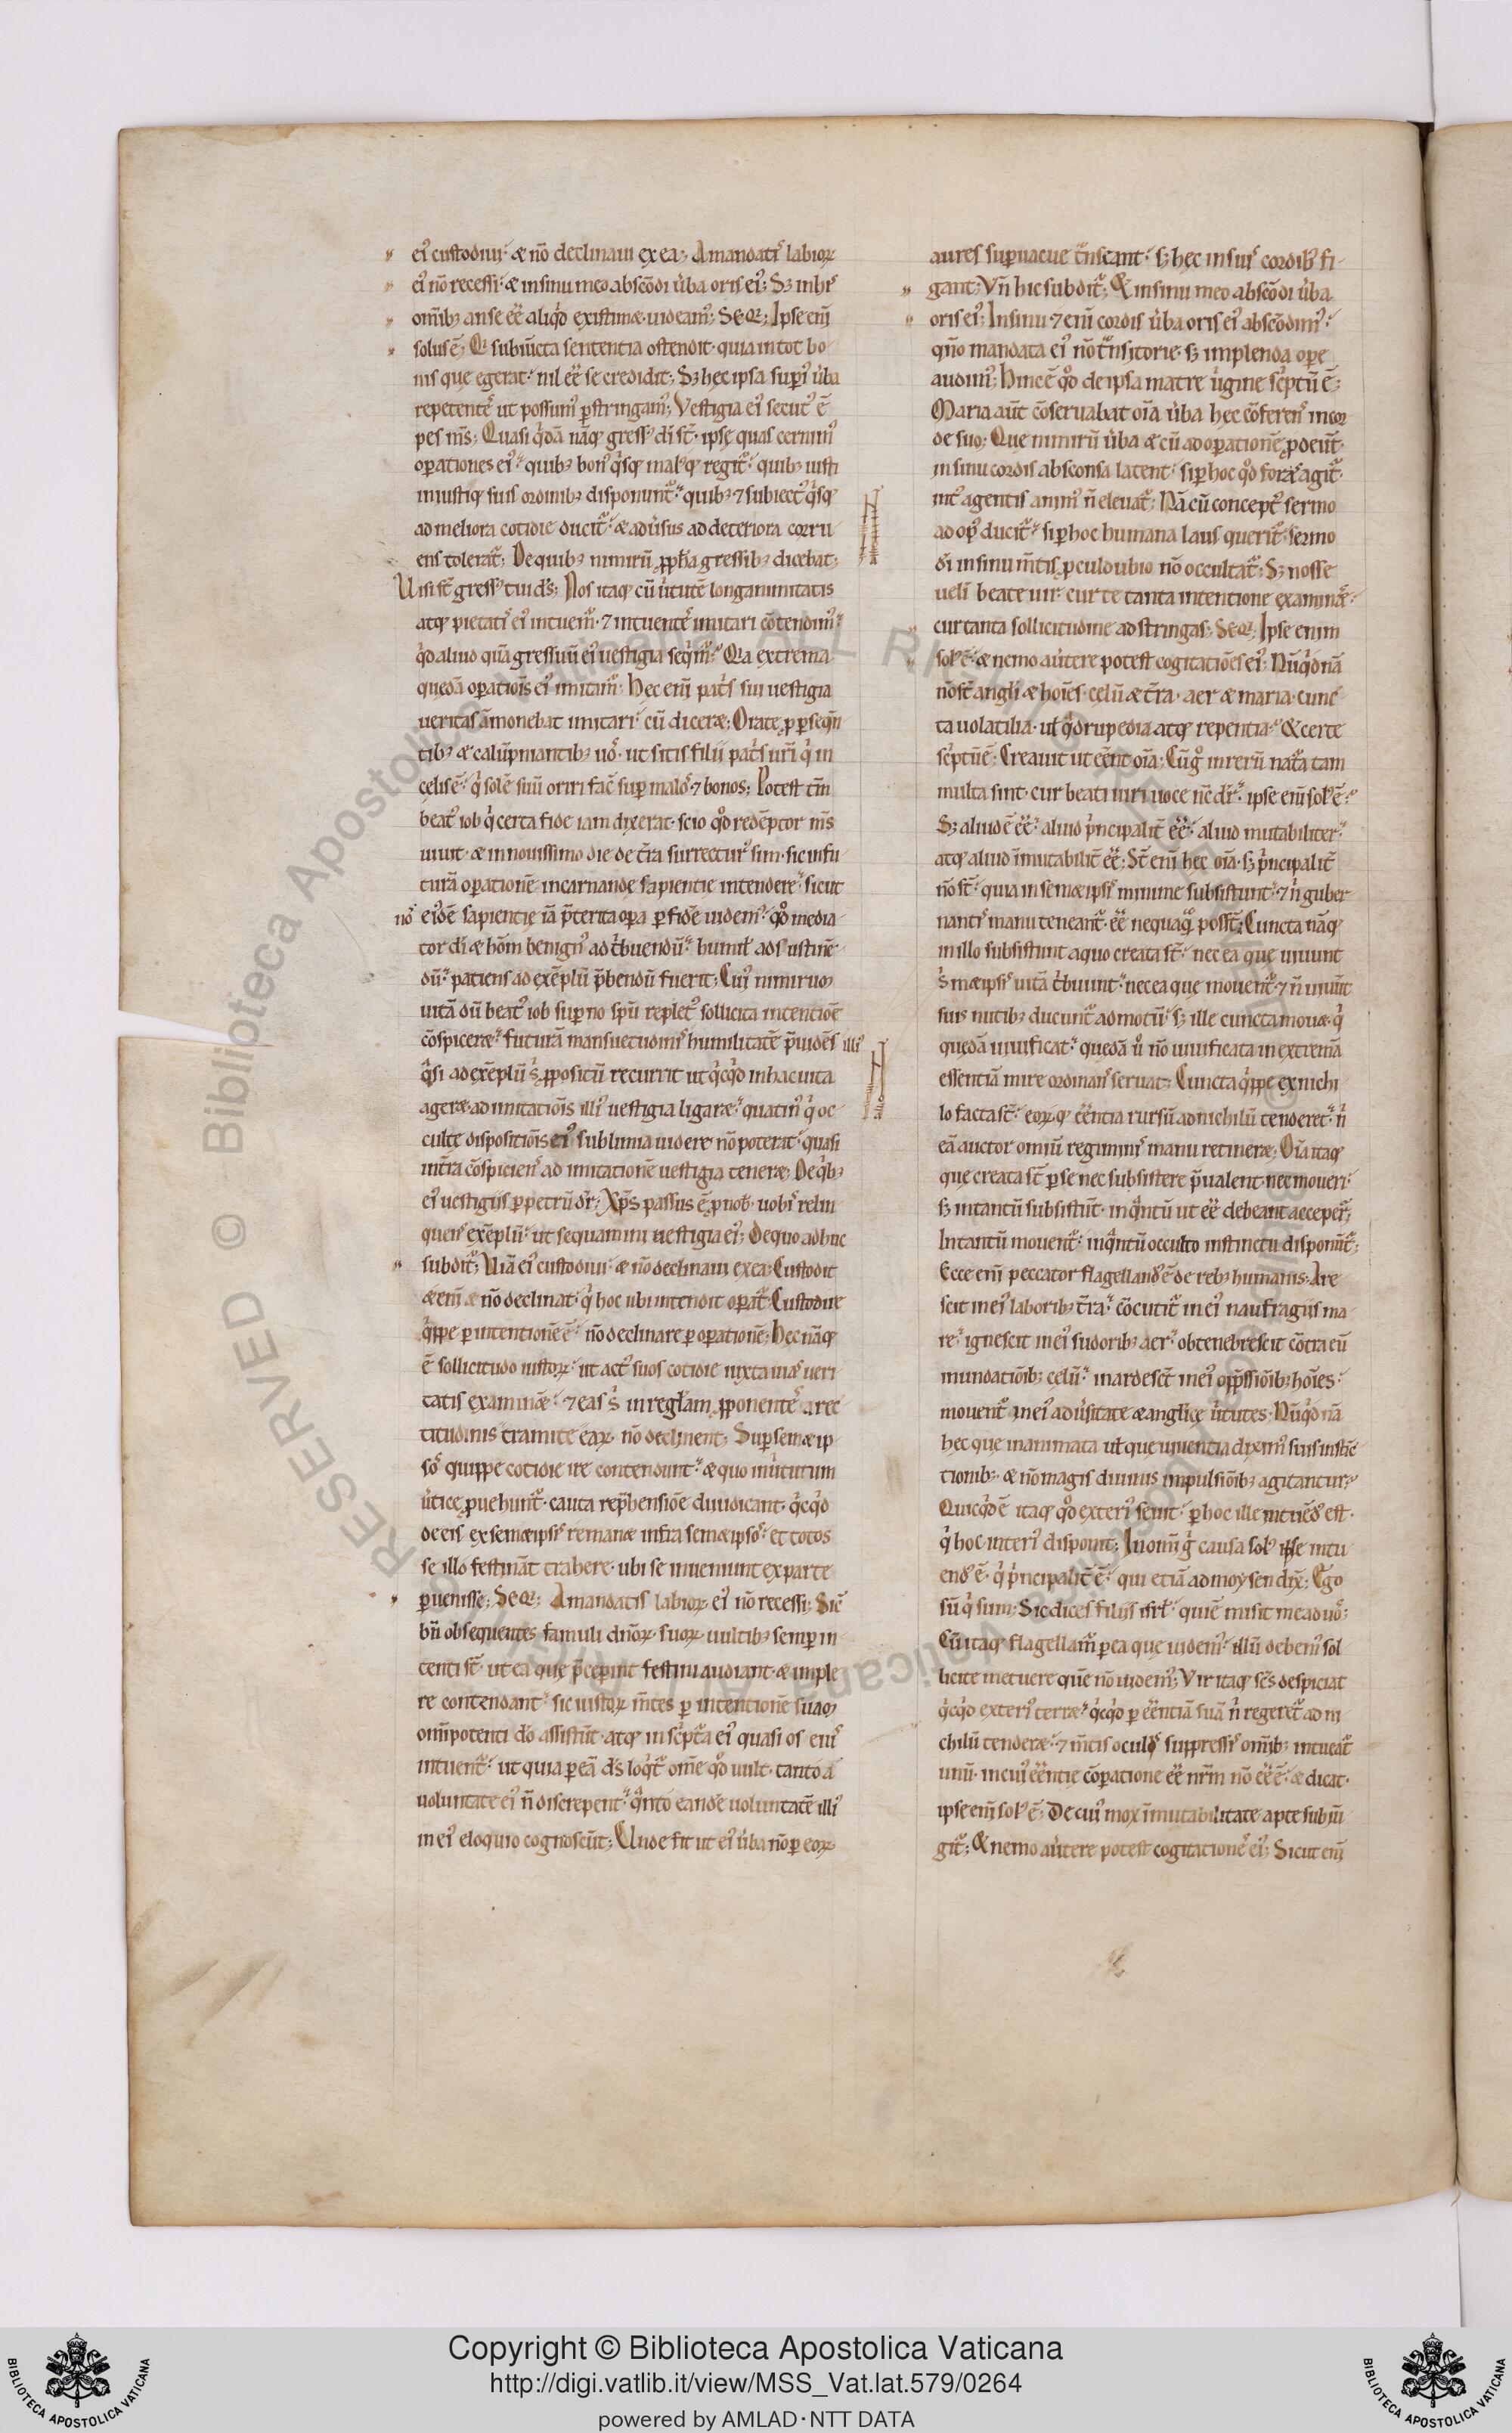 eiꝰ custodiui. & nõ declinaui ex ea; A mandatis labioꝝ
eiꝰ nõ recessi. & in sinu meo abscõdi ùba oris eiꝰ; Sꝫ in his
om̃ibꝫ an se ẽẽ aliq̇d existimæ uideamꝰ; SEQR; Ipse eni͂
solus ẽ; Q subiũcta sententia ostendit. quia in tot bo
nis que egerat. nil ẽẽ se credidit; Sꝫ hec ipsa supiꝰ ùba
repetentes ut possumꝰ pstringamꝰ; Vestigia eiꝰ secutꝰ ẽ
pes m̃s; Quasi q̇dã nãq gressꝰ di st̃. ipsę quas cernimꝰ
operationes eiꝰ. quibꝫ bonꝰ q̇sq malꝰq regit̃. quibꝫ iusti
iniustiq suis ordinibꝫ disponunt̃. quibꝫ ⁊ subiectꝰ q̇sq
ad meliora cotidie ducit̃. & aduersus ad deteriora corru
ens tolerat̃; De quibꝫ nimirũ ppha gressibꝫ dicebat;
Uisi st̃ gressꝰ tui ds; Nos itaq cũ ùtutẽ longanimitatis
atq pietatis eiꝰ intuem̃. ⁊ intuentes imitari cõtendimꝰ
q̇d aliud quã gressuũ eiꝰ uestigia seq̇m̃. Q̇a extrema
quedã operatiõis eiꝰ imitam̃; Hec eni͂ pat̃s sui uestigia
ueritas ãmonebat imitari. cũ diceræ; Orate p pseq̃n
tibꝫ & calũpniantibꝫ uos. ut sitis filii pat̃s ur̃i q̇ in
cęlis ẽ. q̇ solẽ suũ oriri facit sup malos ⁊ bonos; Potest tm̃
beatꝰ iob q̇ certa fide iam dixerat. scio q̇d redẽptor m̃s
uiuit. & in nouissimo die de t̃ra surrecturꝰ sum. sic in fu
turã operationẽ incarnande sapientie intendere. sicut
eiꝰdẽ sapientie iã p̃terita opera p fidẽ uidemꝰ. q̇d media
nõ
tor di & hom̃ benignꝰ ad t̃buendũ. humil̃ ad sustinẽ
dũ. patiens ad exẽplũ p̃bendũ fuerit; Cuiꝰ nimirum
uitã dũ beatꝰ iob superno sp̃u repletꝰ sollicita intentiõe
cõspiceræ. futurã mansuetudinis humilitatẽ p̃uidẽs illiꝰ
q̇si ad exẽplũ s̃ ppositũ recurrit ut q̇cq̇d in hac uita
ageræ. ad imitatiõis illiꝰ uestigia ligaræ. quatinꝰ q̇ oc
culte dispositiõis eiꝰ sublimia uidere nõ poterat. quasi
int̃ra cõspiciens ad imitationẽ uestigia teneræ; De q̇bꝫ
eiꝰ uestigiis p petrũ dr̃; Xp̃s passus ẽ p nob. uobis relin
quens exẽplũ. ut sequamini uestigia eiꝰ; De quo adhuc
subdit̃; Uiã eiꝰ custodiui. & nõ declinaui ex ea; Custodit
& eni͂ & nõ declinat. q̇ hoc ubi intendit operat̃. Custodire
q̇ppe p intentionẽ ẽ. nõ declinare p operationẽ; Hec nãq
ẽ sollicitudo iustoꝝ. ut actꝰ suos cotidie iuxta uias ueri
tatis examinẽ. ⁊ eas s̃ in reglam pponentes a rec
titudinis tramite eaꝝ nõ declinent; Sup semæip
sos quippe cotidie ire contendunt. & quo in ùtutum
ùtice puehunt̃. cauta rep̃hensiõe diiudicant. q̇cq̇d
de eis ex semæipsis remanæ infra semæipsos. et totos
se illo festinãt trahere. ubi se inueniunt ex parte
puenisse; SEQR; A mandatis labioꝝ eiꝰ nõ recessi; Sic
bn̄ obsequentes famuli dn̄oꝝ suoꝝ uultibꝫ semp in
tenti st̃. ut ea que p̃cepint festini audiant & imple
re contendant. sic iustoꝝ m̃tes p intentionẽ suam
om̃ipotenti do assistũt. atq in sc̃pt̃a eiꝰ quasi os eiꝰ
intuent̃. ut quia p eã ds loq̇t̃ om̃e q̇d uult. tanto a
uoluntate eiꝰ ñ discrepent. q̇nto eandẽ uoluntatẽ illiꝰ
in eiꝰ eloquio cognoscũt; Unde fit ut eiꝰ ùba nõ p eoꝝ
aures supuacue t̃nseant. sꝫ hęc in suis cordibꝰ fi
gant; Vñ hic subdit̃; & in sinu meo abscõdi ùba
oris eiꝰ; In sinu ⁊ eni͂ cordis ùba oris eiꝰ abscõdimꝰ.
qño mandata eiꝰ nõ t̃nsitorie. sꝫ implenda opere
audimꝰ; Hinc ẽ q̇d de ipsa matre ùgine sc̃ptũ ẽ;
Maria aut̃ cõseruabat oĩa ùba hec cõferens in cor
de suo; Que nimirũ ùba & cũ ad operationẽ pdeũt.
in sinu cordis absconsa latent. si p hoc q̇d foras agit̃
intꝰ agentis animꝰ ñ eleuat̃; Nã cũ conceptꝰ sermo
ad opꝰ ducit̃. si p hoc humana laus querit̃. sermo
di in sinu m̃tis pculdubio nõ occultat̃; Sꝫ nosse
uelĩ beate uir. cur te tanta intentione examinæ.
cur tanta sollicitudine adstringas; SEQR; Ipse enim
solꝰ ẽ. & nemo auùtere potest cogitatiões eiꝰ; Nũq̇dnã
nõ st̃ angli & hoĩes. celũ & t̃ra. aer & maria. cunc
ta uolatilia. ul̃ q̇drupedia atq repentia. & certe
sc̃ptũ ẽ; Creauit ut cẽnt oĩa; Cũ g̊ in rerũ nat̃a tam
multa sint. cur beati uiri uoce nc̃ dr̃. ipse eni͂ solꝰ ẽ.
Sꝫ aliud ẽ ẽẽ. aliud p̃ncipalit̃ ẽẽ. aliud mutabiliter.
atq aliud ĩmutabilit̃ ẽẽ; St̃ eni͂ hec oĩa. sꝫ p̃ncipalit̃
nõ st̃. quia in semæipsis minime subsistunt. ⁊ ñ guber
nantis manu teneant̃. ẽẽ nequaq̃ posst̃; Cuncta nãq
in illo subsistunt a quo creata st̃. nec ea que uiuunt
s̃ mæipsis uitã t̃buunt. nec ea que mouent̃. ⁊ ñ uiuũt
suis nutibꝫ ducunt̃ ad motũ. sꝫ ille cuncta mouæ. q̇
quedã uiuificat. quedã ů nõ uiuificata in extremã
essentiã mire ordinans seruat; Cuncta q̇ppe ex nichi
lo facta st̃. eoꝝq ẽẽntia rursũ ad nichilũ tenderet. ñ
eã auctor omiũ regiminis manu retineræ; Oĩa itaq
que creata st̃ p se nec subsistere p̃ualent. nec moueri.
sꝫ in tantũ subsistũt. in q̇ntũ ut ẽẽ debeant accepert̃;
In tantũ mouent̃. in q̇ntũ occulto instinctu disponũt̃;
Ecce eni͂ peccator flagellandꝰ ẽ de rebꝫ humanis. Are
scit in eiꝰ laboribꝫ t̃ra. cõcutit̃ in eiꝰ naufragiis ma
re. ignescit in eiꝰ sudoribꝫ aer. obtenebrescit cõtra eũ
inundatiõibꝫ cęlũ. inardesct̃ in eiꝰ opp̃ssiõibꝫ hoĩes.
mouent̃ in eiꝰ adùsitate & anglicę ùtutes. Nũq̇dnã
hec que inanimata ul̃ que uiuentia diximꝰ suis instic
tionibꝫ. & nõ magis diuinis impulsiõibꝫ agitantur.
Quicq̇d ẽ itaq q̇d exteriꝰ seuit. p hoc ille intuẽdꝰ est.
q̇ hoc interiꝰ disponit; In om̃i g̊ causa solꝰ ipse intu
endꝰ ẽ. q̇ p̃ncipalit̃ ẽ. qui etiã ad moysen dix̃; Ego
sũ q̇ sum; Sic dices filiis isrl̃. qui ẽ misit me ad uos;
Cũ itaq flagellam̃ p ea que uidemꝰ. illũ debemꝰ sol
licite metuere quẽ nõ uidemꝰ; Vir itaq sc̃s despiciat
q̇cq̇d exteriꝰ terræ. q̇cq̇d p ẽẽntiã suã ñ regeret̃ ad ni
chilũ tenderæ. ⁊ m̃tis oculis suppressis om̃ibꝫ intueat̃
unũ. in cuiꝰ ẽẽntie cõparatione ẽẽ nr̃m nõ ẽẽ ẽ. & dicat.
ipse eni͂ solꝰ ẽ; De cuiꝰ mox ĩmutabilitate apte subiũ
git̃; & nemo auùtere potest cogitationes eiꝰ; Sicut eni͂
Copyright © Biblioteca Apostolica Vaticana
http://digi.vatlib.it/view/MSS_Vat.lat.579/0264
powered by AMLAD·NTT DATA
BIBLIOTECA APOSTOLICA VATICANA
BIBLIOTECA APOSTOLICA VATICANA